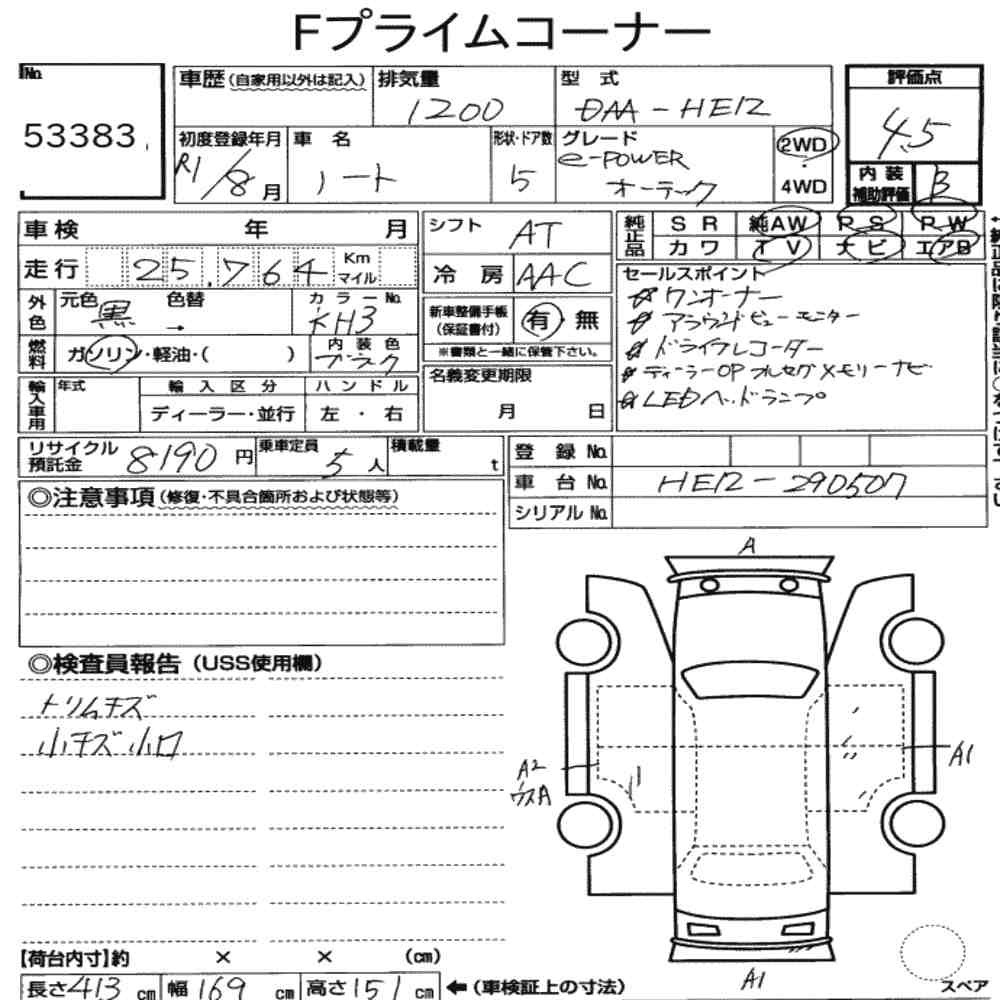 Fプライムコーナー
No.
53383
車歴 (自家用以外は記入)
排気量
1200
型 式
DAA-HE12
評価点
4.5
初度登録年月
R1/8月
車 名
ノート
形状・ドア数
5
グレード
e-POWER
オーテック
2WD
・
4WD
内 装
補助評価
B
車検 年 月
走行 25,764 Km
マイル
外色
元色 黒
色替 →
カラーNo.
KH3
燃料
ガソリン・軽油・( )
内 装 色
ブラック
輸入車用
年式
輸 入 区 分
ディーラー・並行
ハ ン ド ル
左 ・ 右
シフト
AT
冷 房
AAC
新車整備手帳
(保証書付)
有・無
※書類と一緒に保管下さい。
名義変更期限
月 日
純正品
S R
純AW
P S
P W
カ ワ
T V
ナ ビ
エアB
セールスポイント
☆ワンオーナー
☆アラウンドビューモニター
☆ドライブレコーダー
☆ディーラーOPフルセグメモリーナビ
☆LEDヘッドランプ
リサイクル
預託金
8190円
乗車定員
5人
積載量
t
登 録 No.
車 台 No. HE12-290507
シリアル No.
◎注意事項(修復・不具合箇所および状態等)
◎検査員報告 (USS使用欄)
トリムキズ
小キズ小凹
A
A2
ウスA
A1
A1
スペア
【荷台内寸】約 × × (cm)
長さ413cm
幅169cm
高さ151cm
←(車検証上の寸法)